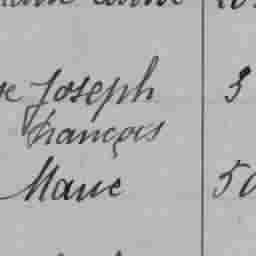 Joseph 3
François
Marie 50